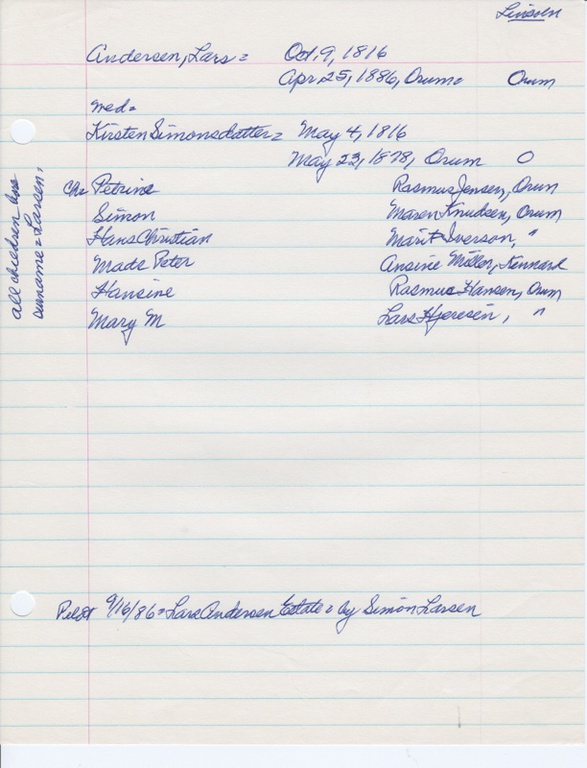 Lincoln
Andersen, Lars = Oct. 9, 1816
Apr. 25, 1886, Orum = Orum
med =
Kirsten Simonsdatter = May 4, 1816
May 23, 1878, Orum O
all children use surname = Larsen,
Ch = Petrine Rasmus Jensen, Orum
Simon Maren Knudsen, Orum
Hans Christian Marit Iverson, "
Mads Peter Ansine Miller, Kennard
Hansine Rasmus Hansen, Orum
Mary M Lars Hjeresen, "
Pilot 9/16/86 = Lars Andersen Estate = by Simon Larsen